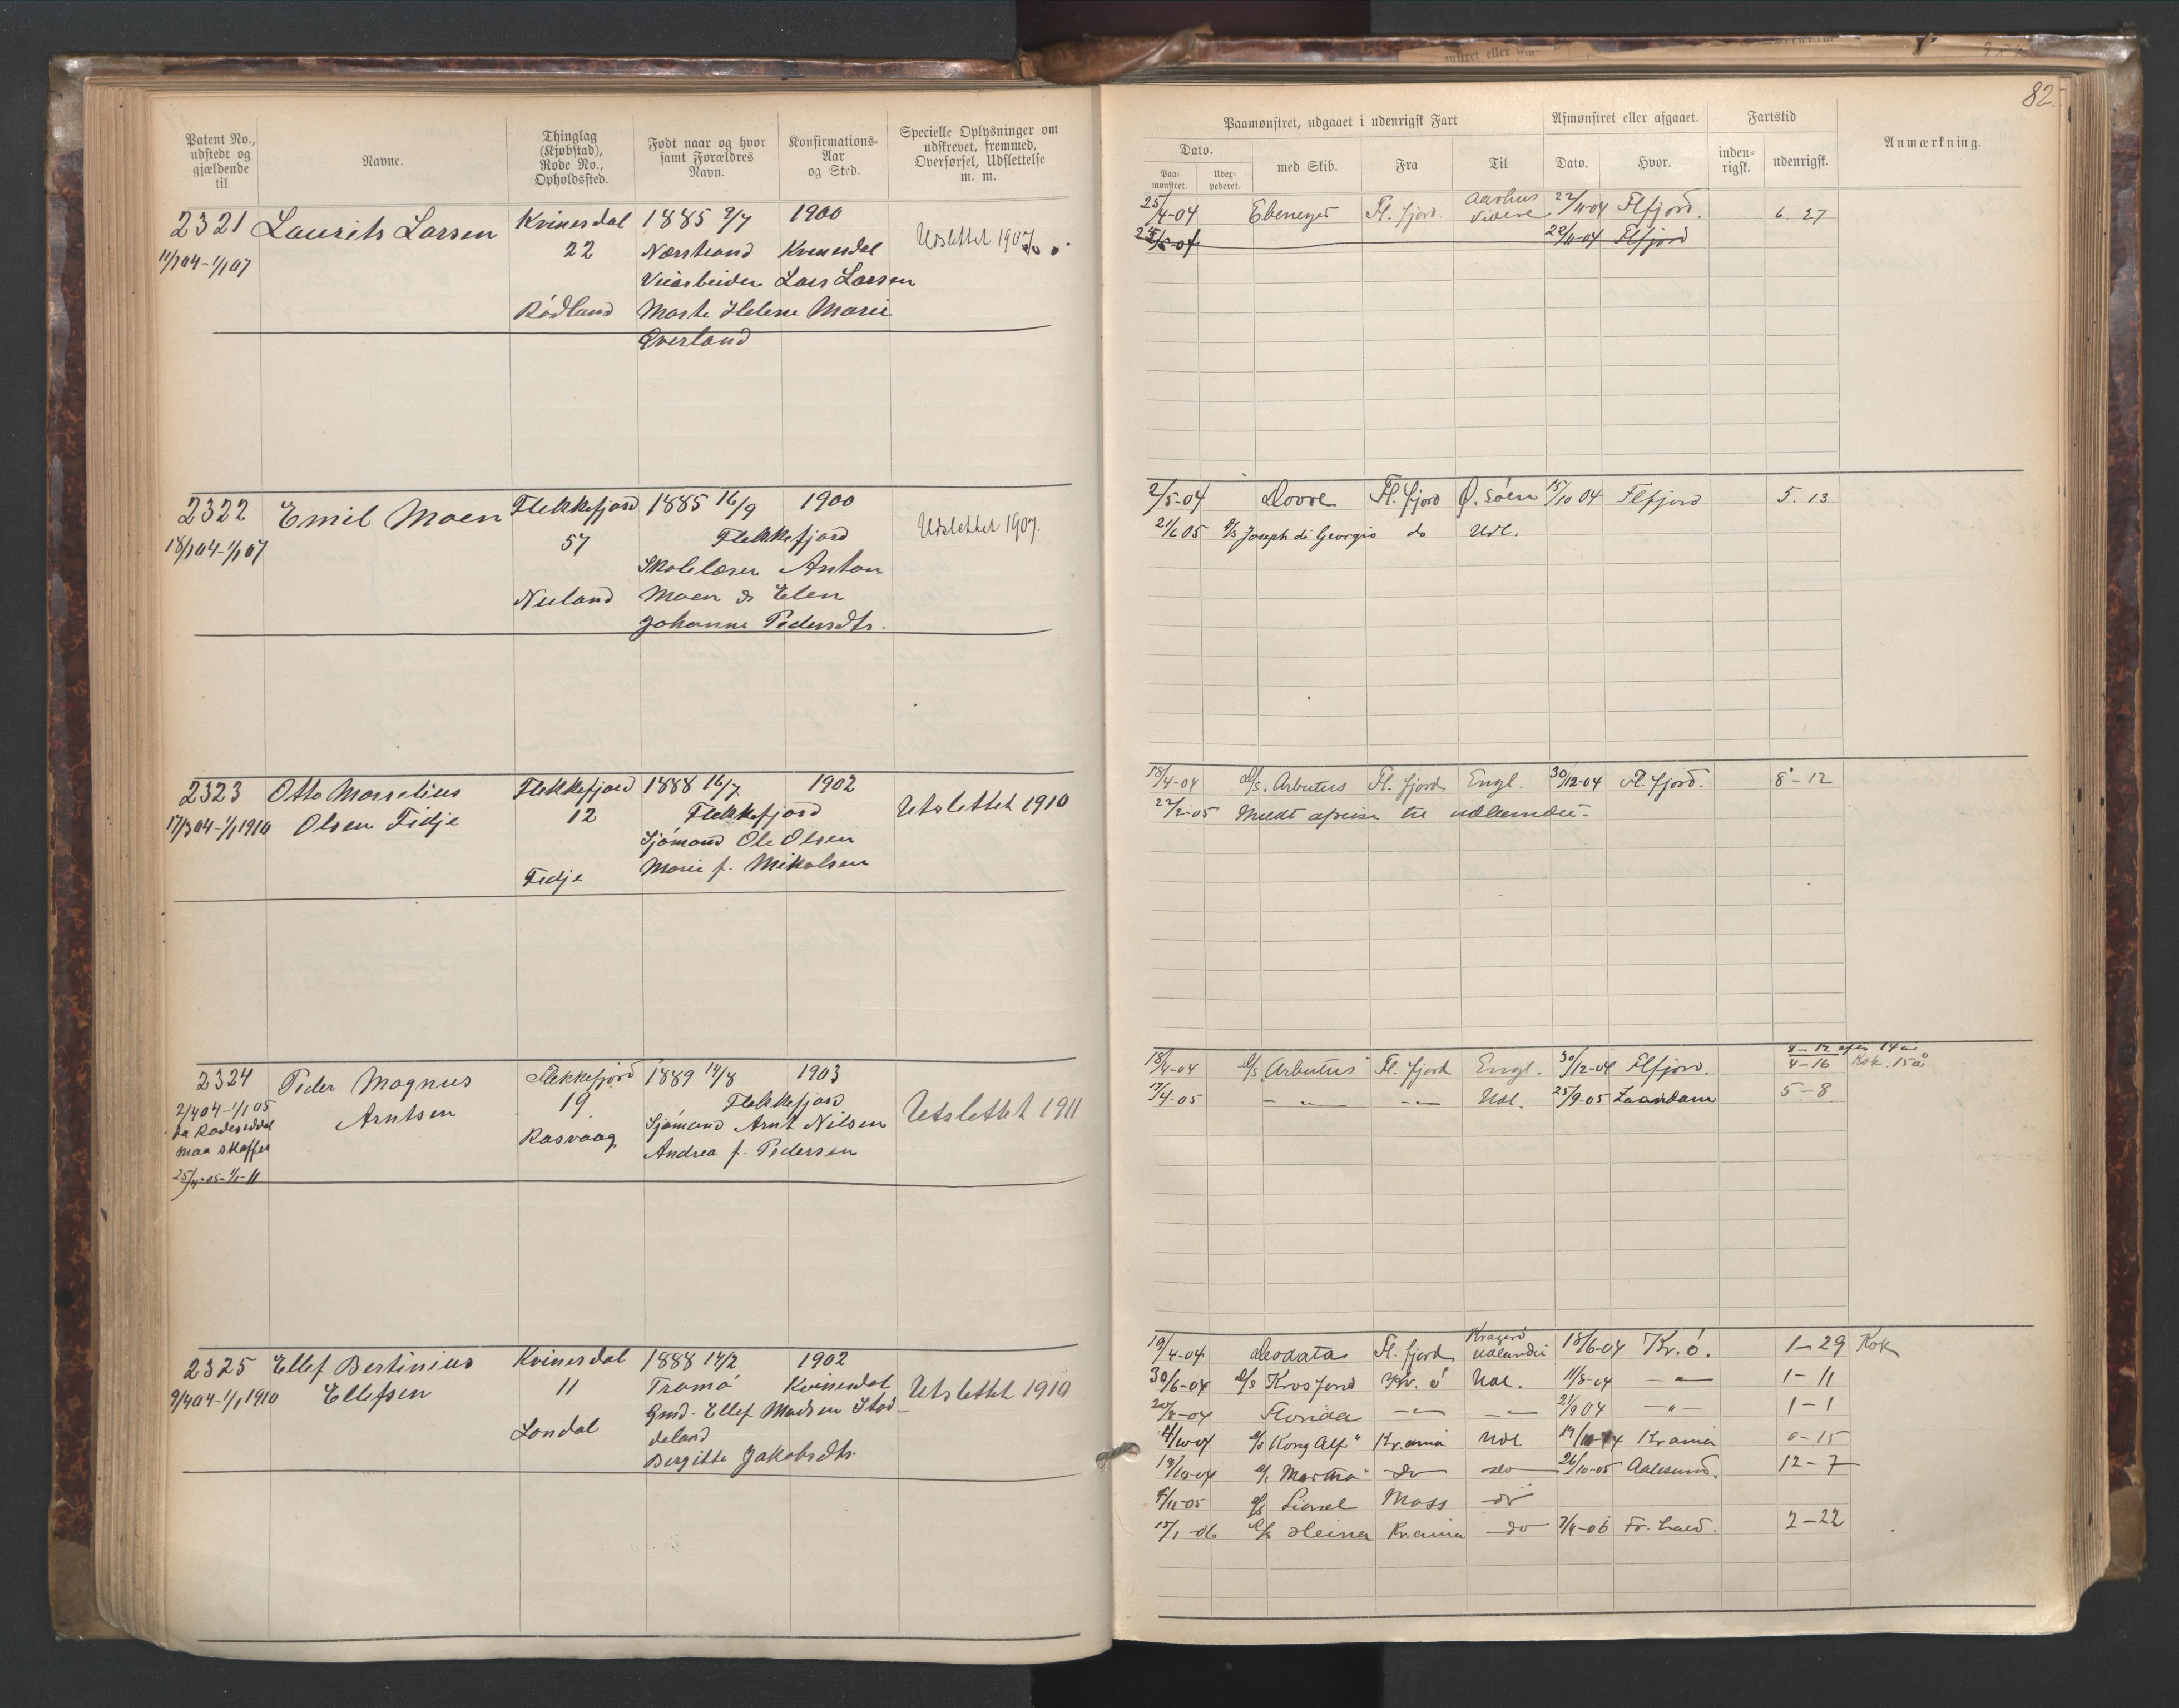 82.
Patent No., udstedt og gjældende til
Navne.
Thinglag (Kjøbstad), Rode No., Opholdssted.
Født naar og hvor samt Forældres Navn.
Konfirmations-Aar og Sted.
Specielle Oplysninger om udskrevet, fremmed, Overførsel, Udslettelse m. m.
Paamønstret, udgaaet i udenrigsk Fart
Afmønstret eller afgaaet.
Fartstid
Anmærkning.
Dato.
med Skib.
Fra
Til
Dato.
Hvor.
inden-rigsk.
udenrigsk.
Paa-mønstret.
Udex-pederet.
2321 Laurits Larsen Kvinesdal 1885 9/7 1900 Udslettet 1907
11/1 04-1/1 07 22 Nærstrand Kvinesdal
Veiarbeider Lars Larsen
Rødland Marte Helene Marie
Øverland
25/4-04 Ebeneser Fl.fjord Aarhus videre 22/11-04 Flfjord. 6. 27
22/11-04 Flfjord
2322 Emil Moen Flekkefjord 1885 16/9 1900 Udslettet 1907.
18/1 04-1/1 07 57 Flekkefjord
Skolelærer Anton
Nuland Moen & Elen
Johanne Pedersdtr.
2/5-04 Dovre Fl.fjord Ø.søen 15/10 04 Flfjord 5. 13
21/6 05 Joseph di Georgio do Udl.
2323 Otto Marselius Flekkefjord 1888 16/7 1902 Utslettet 1910
17/3 04-1/1 1910 Olsen Fidje 12 Flekkefjord
Sjømand Ole Olsen
Fidje Marie f. Mikalsen
18/4-04 D/S. Arbutus Fl.fjord Engl. 30/12-04 Fl.fjord. 8-12
22/2-05 Meldt afreise til udlandet.
2324 Peder Magnus Flekkefjord 1889 14/8 1903 Utslettet 1911
2/4 04-1/1 05 Arntsen 19 Flekkefjord
da Rodeseddel Rasvaag Sjømand Arnt Nilsen
maa skaffes Andrea f. Pedersen
25/4-05-1/1-11
8-12 efter 14 aar
18/4-04 D/S Arbutus Fl.fjord Engl. 30/12-04 Flfjord. 4-16 Kok 15 a
17/4-05 - " - - " - Udl. 25/9-05 Zaandam 5-8
2325 Ellef Bertinius Kvinesdal 1888 14/2 1902 Utslettet 1910
9/4 04-1/1 1910 Ellefsen 11 Tromø Kvinesdal
Gmd. Ellef Madsen Stod-
Londal deland
Bergitte Jakobsdtr.
19/4-04 Deodata Fl.fjord Kragerø udlandet 18/6-04 Kr.ø. 1-29 Kok
30/6-04 D/S Krosfond Kr.ø Udl. 11/8-04 - " - 1-11
20/8-04 Florida - " - - " - 21/9 04 - " - 1-1
4/10-04 D/S Kong Alf" Kr.ania Udl 19/10-04 Kr ania 0-15
19/10-04 Martha" do do 26/10-05 Aalesund. 12-7
4/11-05 Lionel Moss do
15/1-06 D/S Heina Kr.ania do 7/4-06 Fr.hald. 2-22